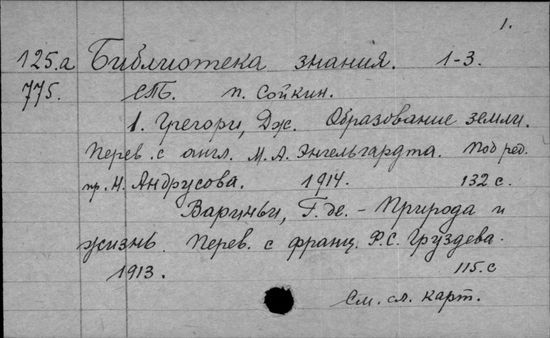 1.
125.а Библиотека знания. 1-3.
775. СТБ. П. Сойкин.
1. Грегори, Дж. Образование земли.
Перев. с англ. М. А. Энгельгардта. Под ред.
пр. Н. Андрусова. 1914. 132 с.
Вариньи, Г. де. - Природа и
жизнь. Перев. с франц. Ф. С. Груздева.
1913. 115.с
См. сл. карт.